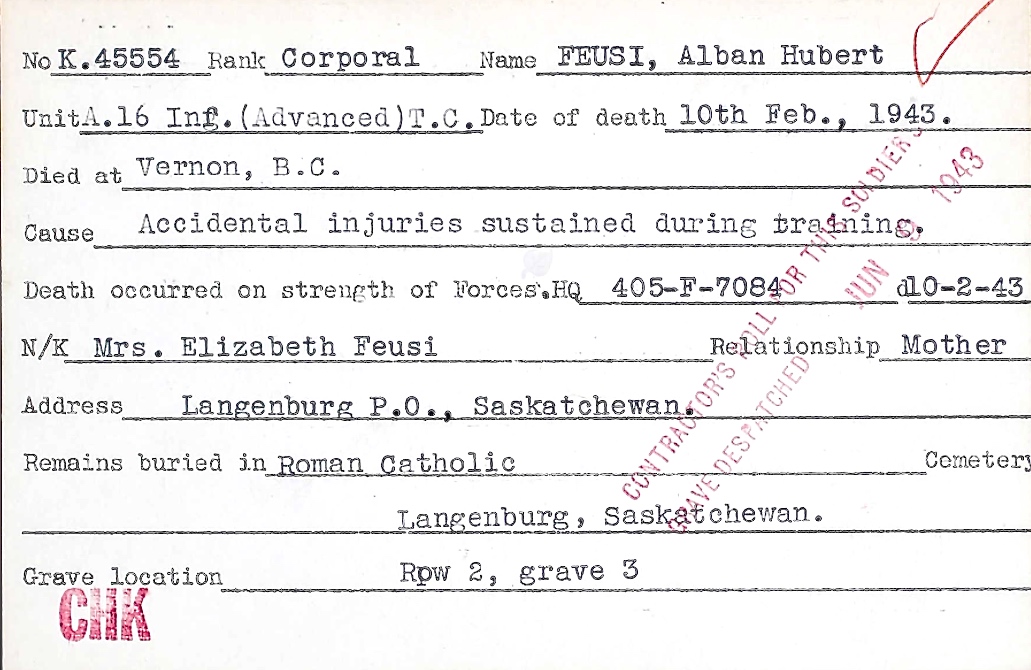 No K.45554 Rank Corporal Name FEUSI, Alban Hubert
Unit A.16 Inf.(Advanced)T.C. Date of death 10th Feb., 1943.
Died at Vernon, B.C.
Cause Accidental injuries sustained during training.
Death occurred on strength of Forces. HQ 405-F-7084 d10-2-43
N/K Mrs. Elizabeth Feusi Relationship Mother
Address Langenburg P.O., Saskatchewan.
Remains buried in Roman Catholic Cemetery
Langenburg, Saskatchewan.
Grave location Rpw 2, grave 3
CHK
CONTRACTOR'S ROLL FOR THIS SOLDIER'S
GRAVE DESPATCHED JUN 1943